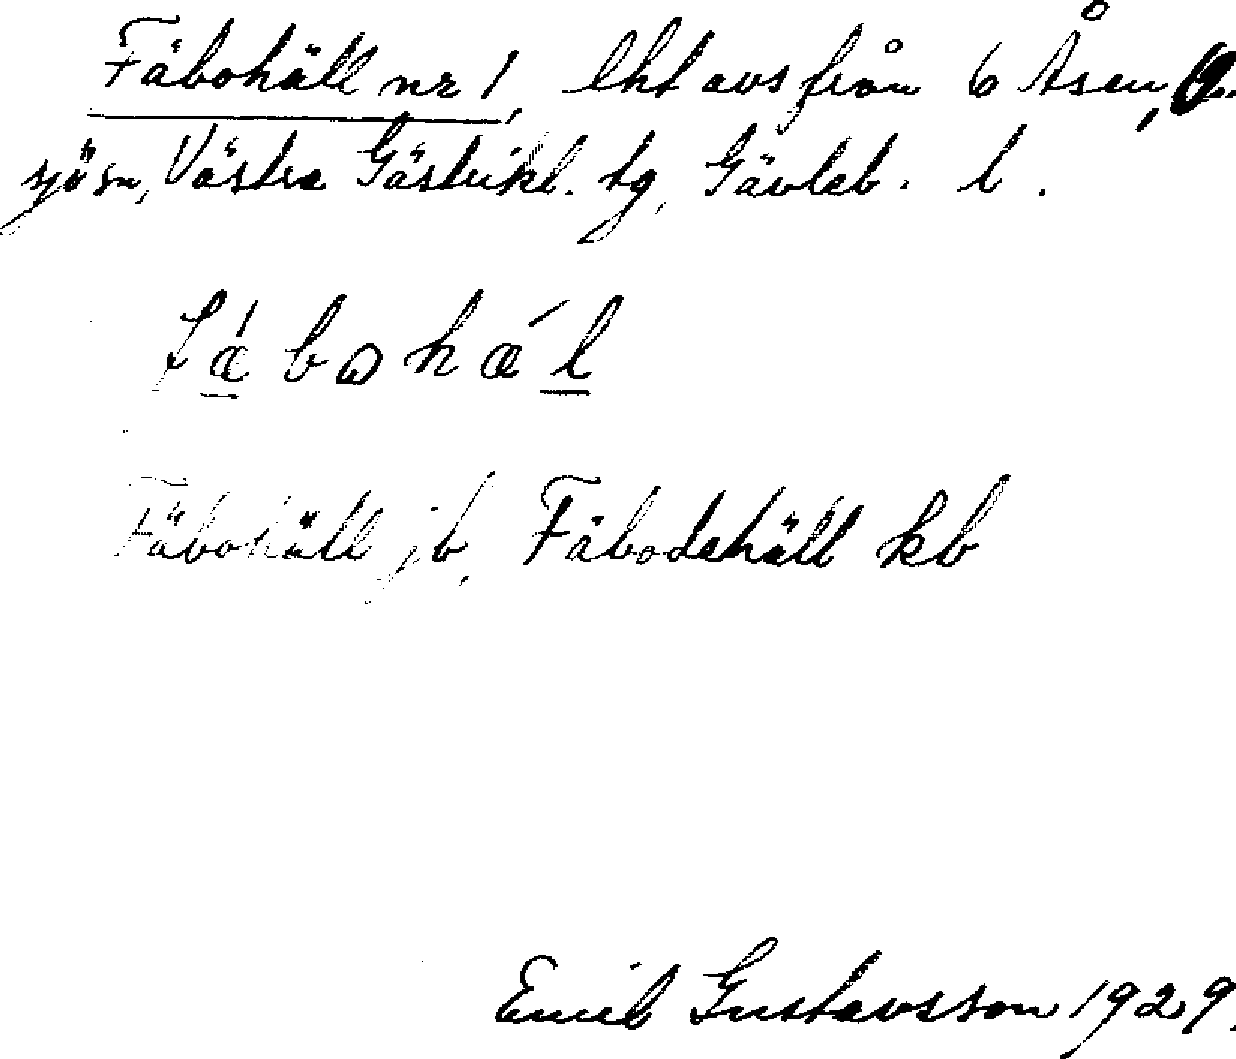 Fäbohäll nr 1, lht avs från 6 Åsen,
sjö sn, Västra Gästrikl. tg, Gävleb. l.
fæ̀bohæ´l
Fäbohäll jb, Fäbodehäll kb
Emil Gustavsson 1929.